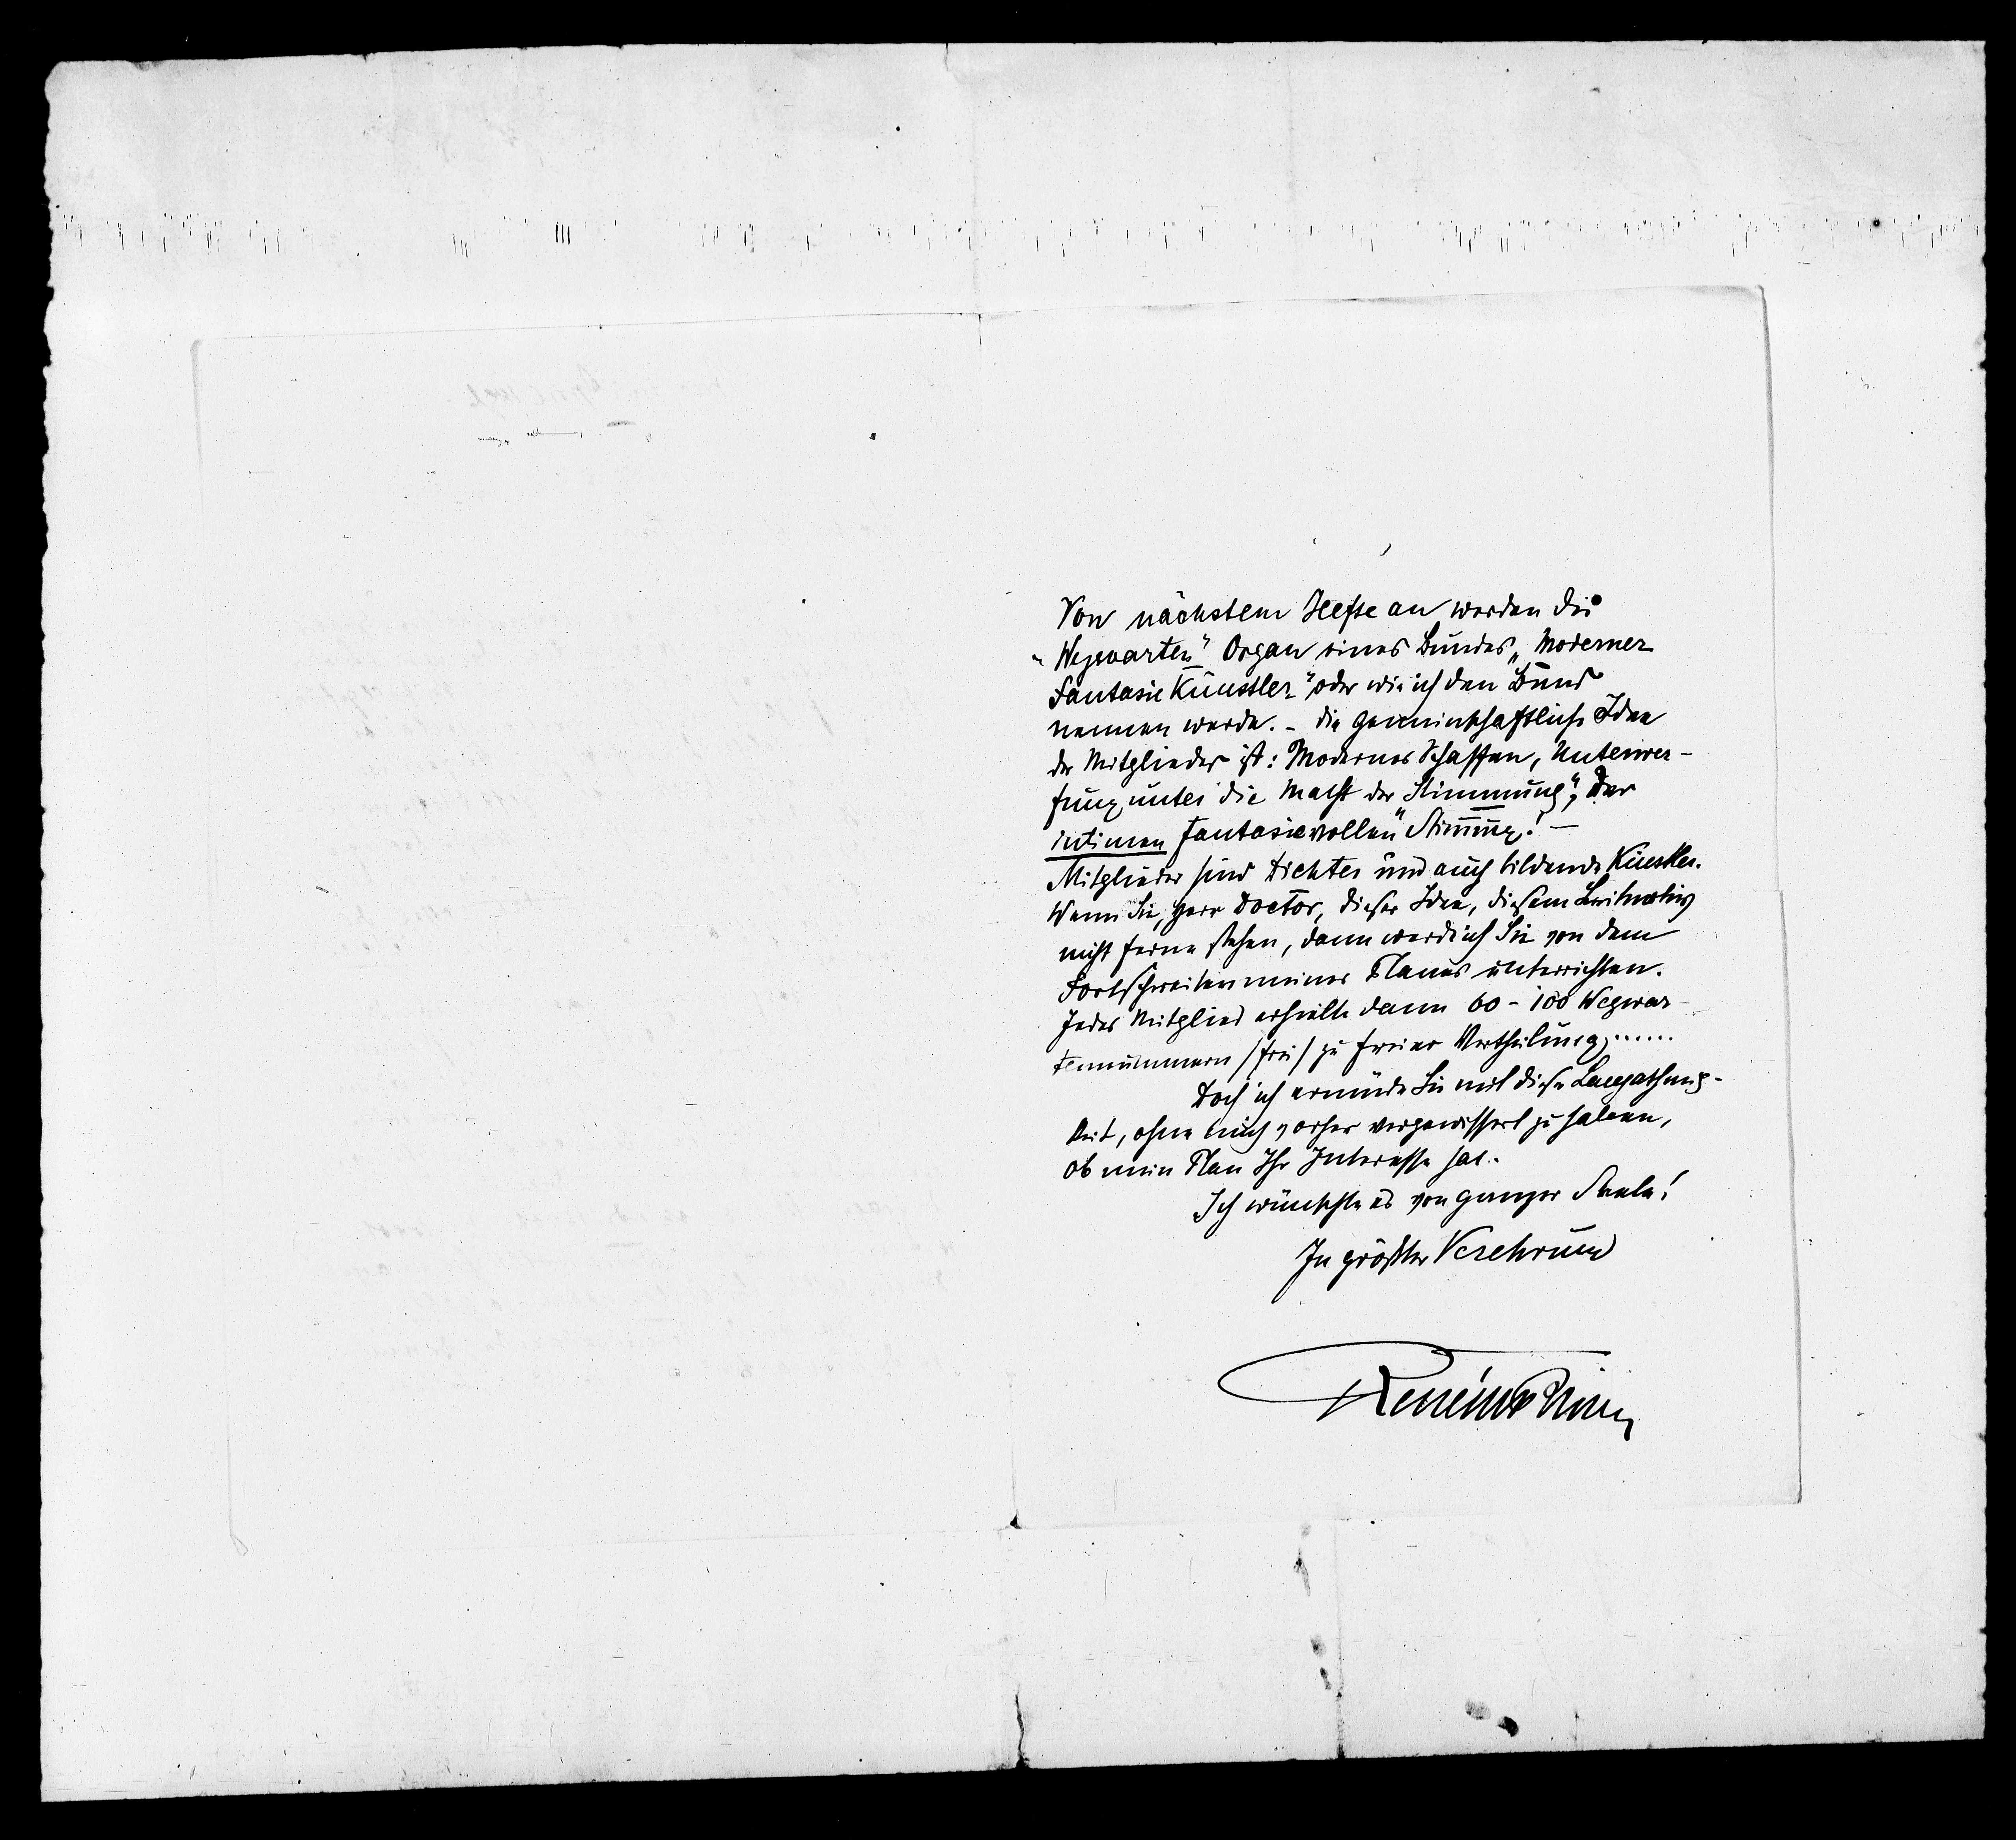 Von nächstem Hefte an werden die
„Wegwarten" Organ eines Bundes „Moderner
Fantasie Künstler" oder wie ich den Bund
nennen werde. – Die gemeinschaftliche Idee
der Mitglieder ist: Modernes Schaffen, Unterwer-
fung unter die Macht der „Stimmung", der
intimen fantasievollen Stimmung! –
Mitglieder sind Dichter und auch bildende Künstler.
Wenn Sie, Herr Doctor, dieser Idee, diesem Leitmotiv
nicht ferne stehen, dann werde ich Sie von dem
Fortschreiten meines Planes unterrichten.
Jedes Mitglied erhielte dann 60 – 100 Wegwar-
tennummern /frei/ zu freier Vertheilung......
Doch ich ermüde Sie mit diese Langathmig-
keit, ohne mich vorher vergewissert zu haben,
ob mein Plan Ihr Interesse hat.
Ich wünschte es von ganzer Seele!
In größter Verehrung
René Maria Rilke